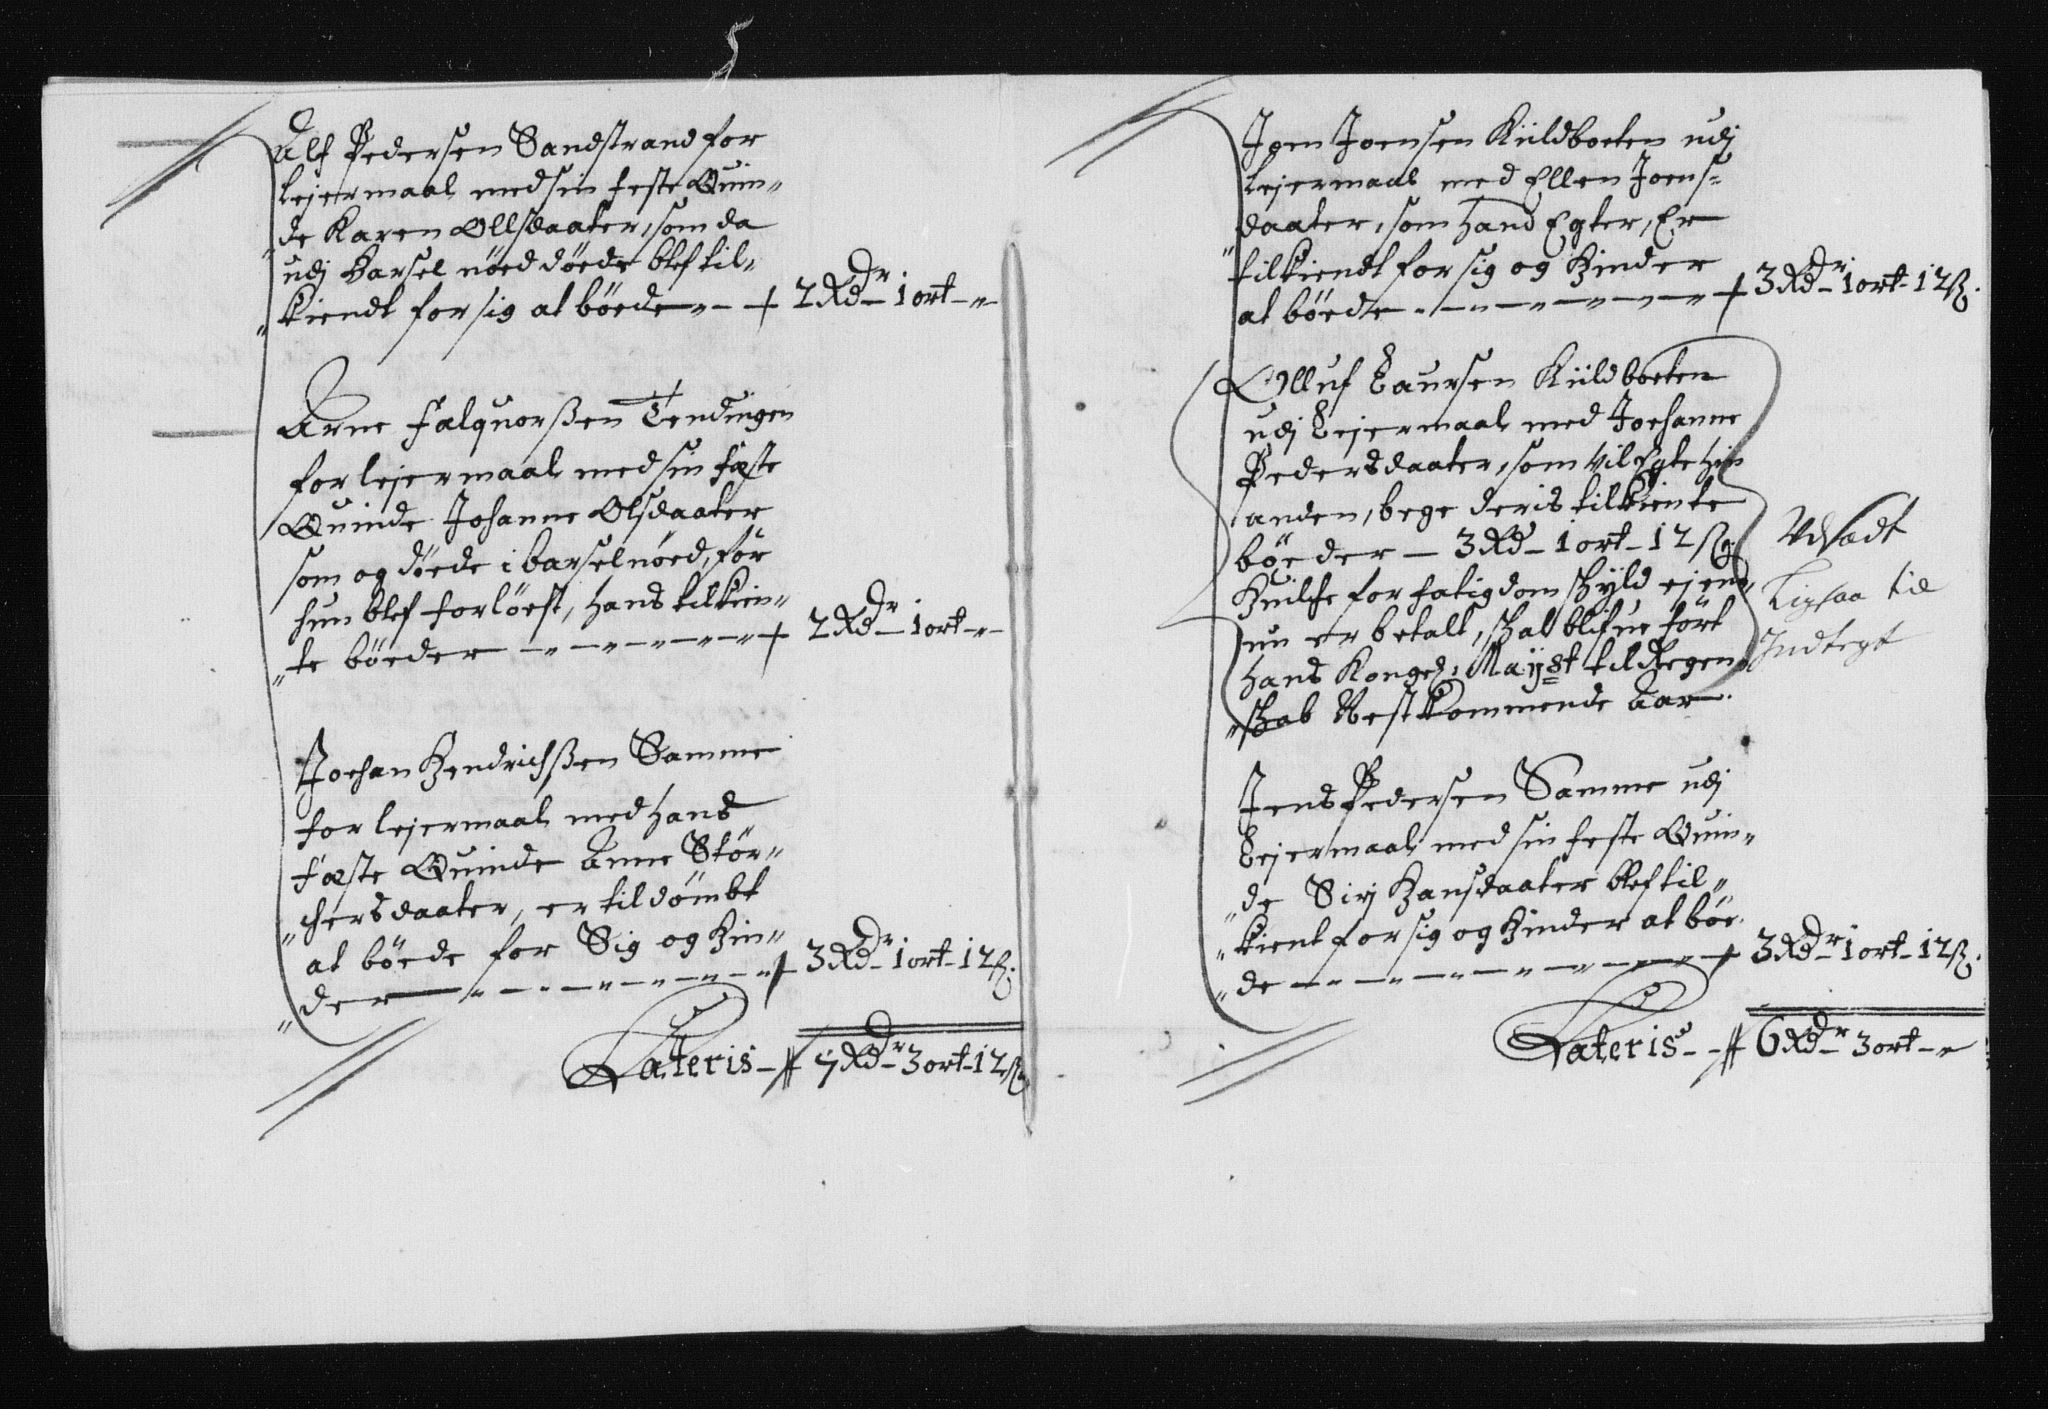 Alf Pedersen Sandstrand for
lejermaal med sin feste Quin-
de Karen Ollsdaater, som da
udj Barsel nöed döede blef til-
kiendt for sig at böede - - 2 Rdr - 1 ort - "
Arne Falquorßen Tendingen
for lejermaal med sin fæste
Quinde Johanne Olsdaater
som og döede i barselnöed, för
hun blef forlöest, hans tilkien-
te böeder - - - - 2 Rdr - 1 ort - "
Joehan Hendrichßen Samme
for lejermaal med hans
fæste Quinde Anne Stör-
chersdaater, er tildömbt
at böede for Sig og Hin-
der - - - - 3 Rdr - 1 ort - 12 ß.
Lateris - 7 Rdr - 3 ort - 12 ß
Joen Joensen Kiildboeten udj
Lejermaal med Ellen Joens-
daater, som hand Egter, Er
tilkiendt for sig og Hinder
at böede - - - - 3 Rdr - 1 ort - 12 ß.
Olluf Laursen Kiildboeten
udj Lejermaal med Joehanne
Pedersdaater, som vil Egte hin
anden, bege deris tilkiente
böeder - 3 Rd - 1 ort - 12 ß
Huilche for fatigdom skyld ej end
nu er betalt, skal blifue fört
hans Kongel: Mayst til Regen-
skab Nestkommende Aar.
Udsadt
Ligsaa til
Indtegt
Jens Pedersen Samme udj
Lejermaal med sin feste Quin-
de Sirj Hansdaater blef til-
kient for sig og Hinder at böe-
de - - - - 3 Rdr - 1 ort - 12 ß.
Lateris - - 6 Rdr - 3 ort - "